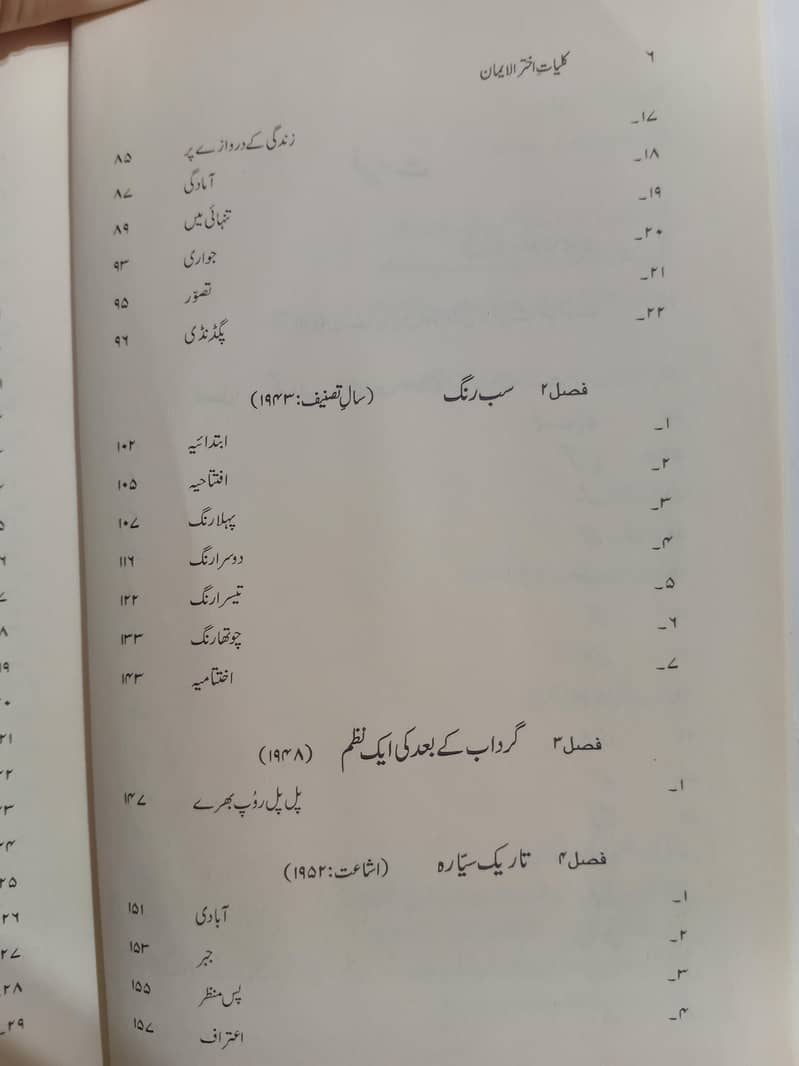 ۶ کلیاتِ اختر الایمان
۱۷۔ زندگی کے دروازے پر ۸۵
۱۸۔ آمادگی ۸۷
۱۹۔ تنہائی میں ۸۹
۲۰۔ جواری ۹۳
۲۱۔ تصوّر ۹۵
۲۲۔ پگڈنڈی ۹۶
فصل ۲ سب رنگ (سالِ تصنیف: ۱۹۴۳)
۱۔ ابتدائیہ ۱۰۲
۲۔ افتتاحیہ ۱۰۵
۳۔ پہلا رنگ ۱۰۷
۴۔ دوسرا رنگ ۱۱۶
۵۔ تیسرا رنگ ۱۲۲
۶۔ چوتھا رنگ ۱۳۳
۷۔ اختتامیہ ۱۴۳
فصل ۳ گرداب کے بعد کی ایک نظم (۱۹۴۸)
۱۔ پل پل رُوپ بھرے ۱۴۷
فصل ۴ تاریک سیّارہ (اشاعت: ۱۹۵۲)
۱۔ آبادی ۱۵۱
۲۔ جبر ۱۵۳
۳۔ پس منظر ۱۵۵
۴۔ اعتراف ۱۵۷
۲۱
۲۲
۲۳
۲۴
۲۵
۲۶
۲۷
۲۸
۲۹۔